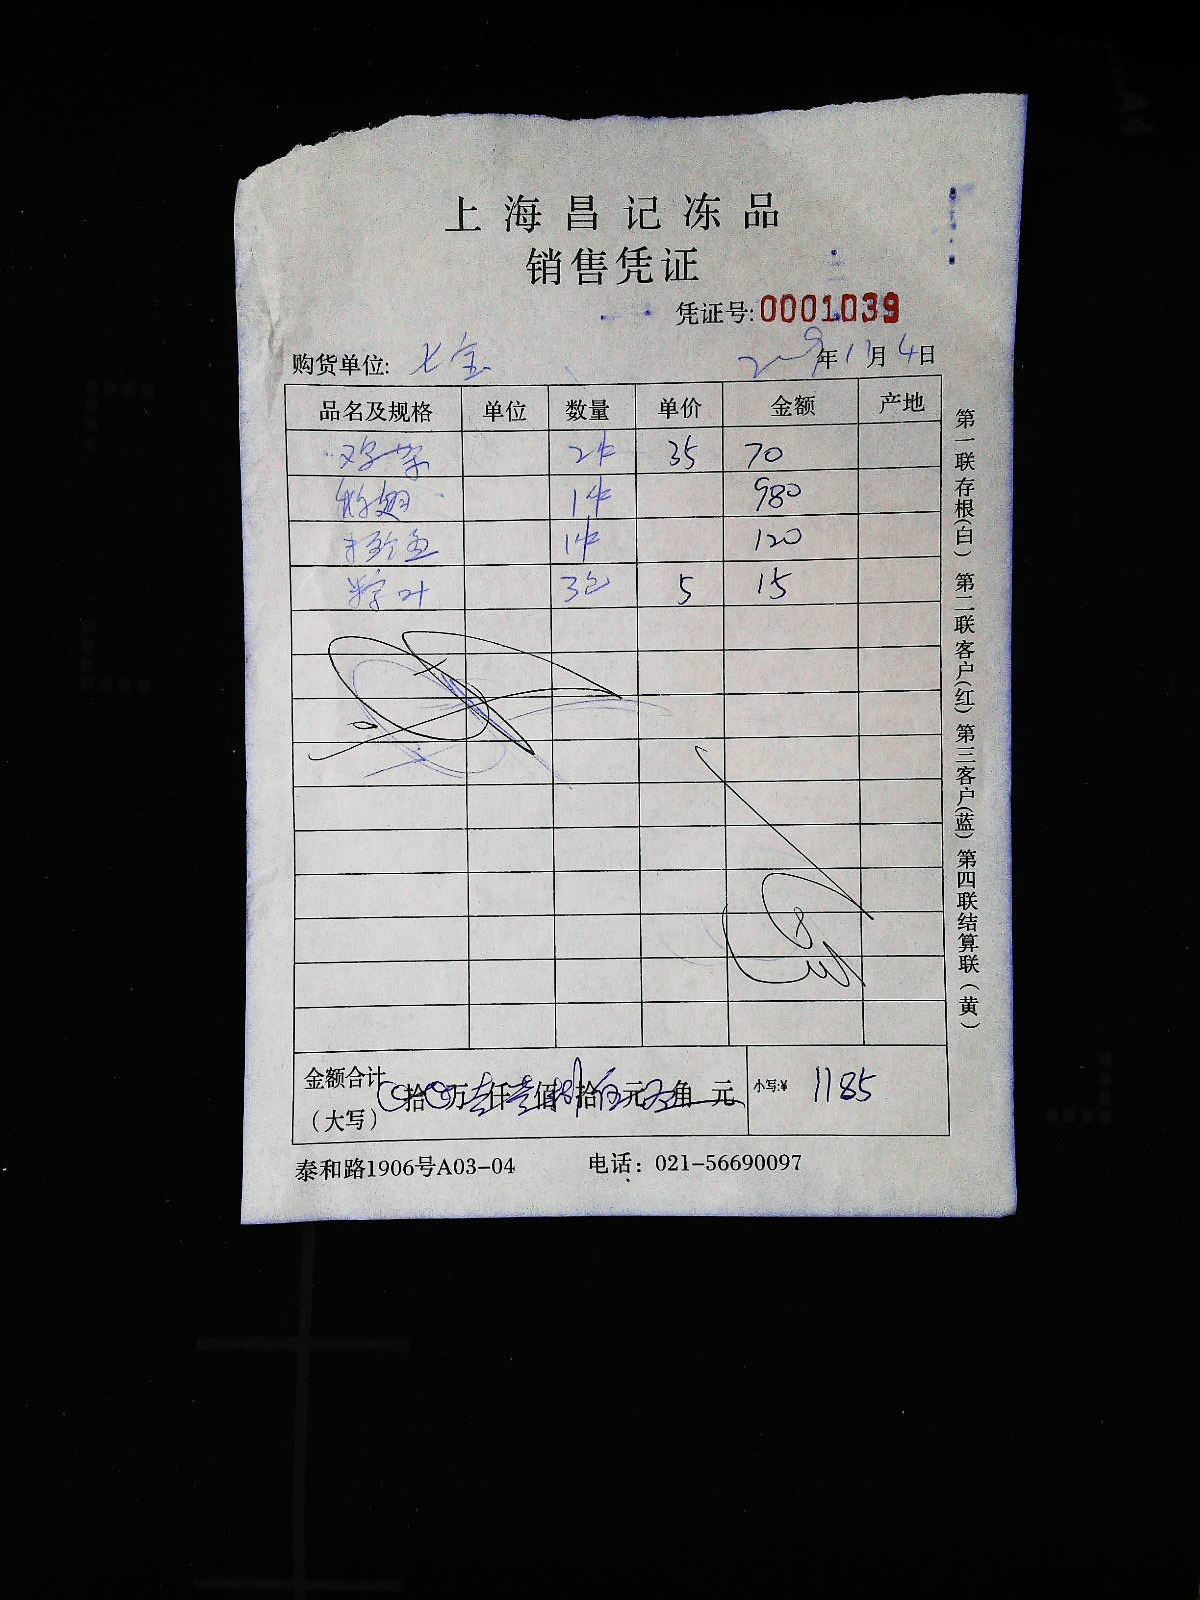 上海昌记冻品
销售凭证
凭证号:0001039
购货单位: 七宝 年11月4日
品名及规格 单位 数量 单价 金额 产地
2件 35 70
1件 980
1件 120
粽叶 3包 5 15
金额合计
拾万壹仟壹佰捌拾伍元 角 元 小写:¥ 1185
(大写)
泰和路1906号A03-04 电话: 021-56690097
第一联存根(白) 第二联客户(红) 第三客户(蓝) 第四联结算联(黄)